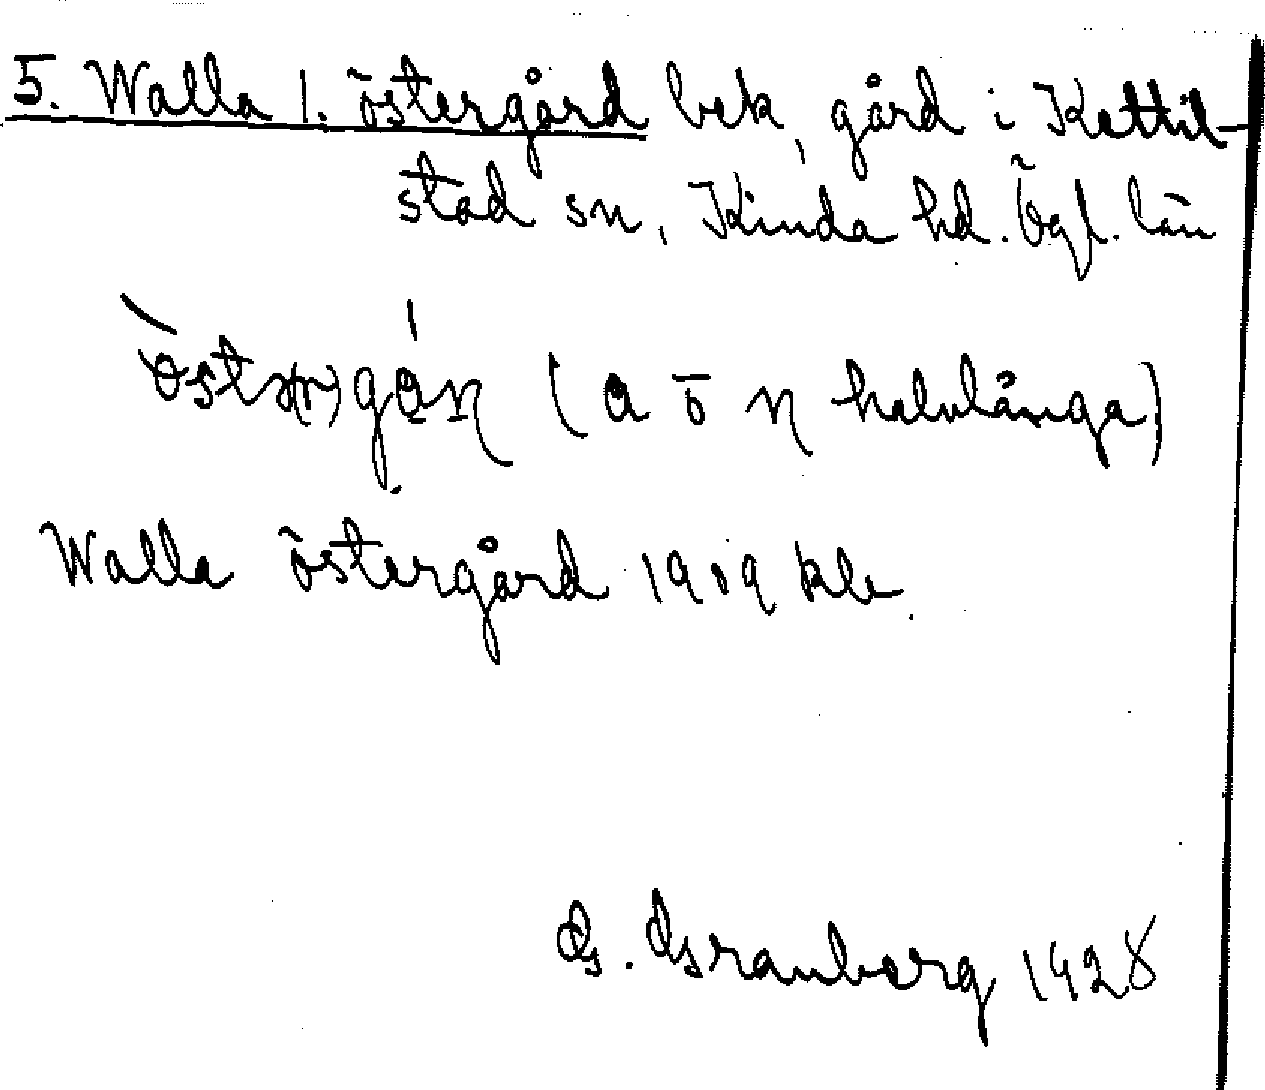 5. Walla l. östergård bek, gård i Kettil-
stad sn, Kinda hd. Ögl. län
(a ö n halvlånga)
Walla östergård 1909 kle
G. Granberg 1928